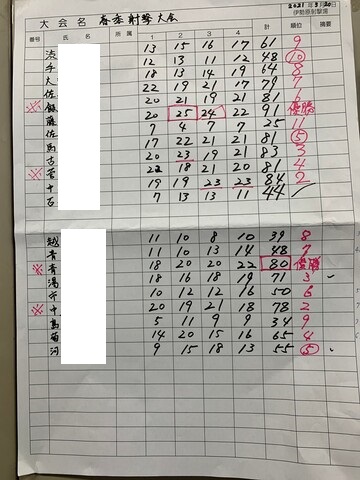 大会名 春季射撃大会 2021年3月20日
伊勢原射撃場
番号 氏名 所属 1 2 3 4 計 順位 摘要
13 15 16 17 61 9
12 13 11 12 48 ⑩
大 18 13 14 19 64 8
佐 22 19 21 17 79 7
※ 飯 20 21 19 21 81 6
藤 20 25 24 22 91 優勝
佐 7 4 7 7 25 11
馬 17 22 21 21 81 ⑤
古 20 23 19 21 83 3
※ 菅 22 18 21 20 81 4
十 19 19 23 23 84 2
石 7 13 13 11 44
越 11 10 8 10 39 8
青 11 10 13 14 48 7
※ 青 18 20 20 22 80 優勝
湯 18 16 18 19 71 3
市 10 12 12 16 50 6
※ 中 20 19 21 18 78 2
5 11 9 9 34 9
菊 14 20 15 16 65 4
河 9 15 18 13 55 ⑤